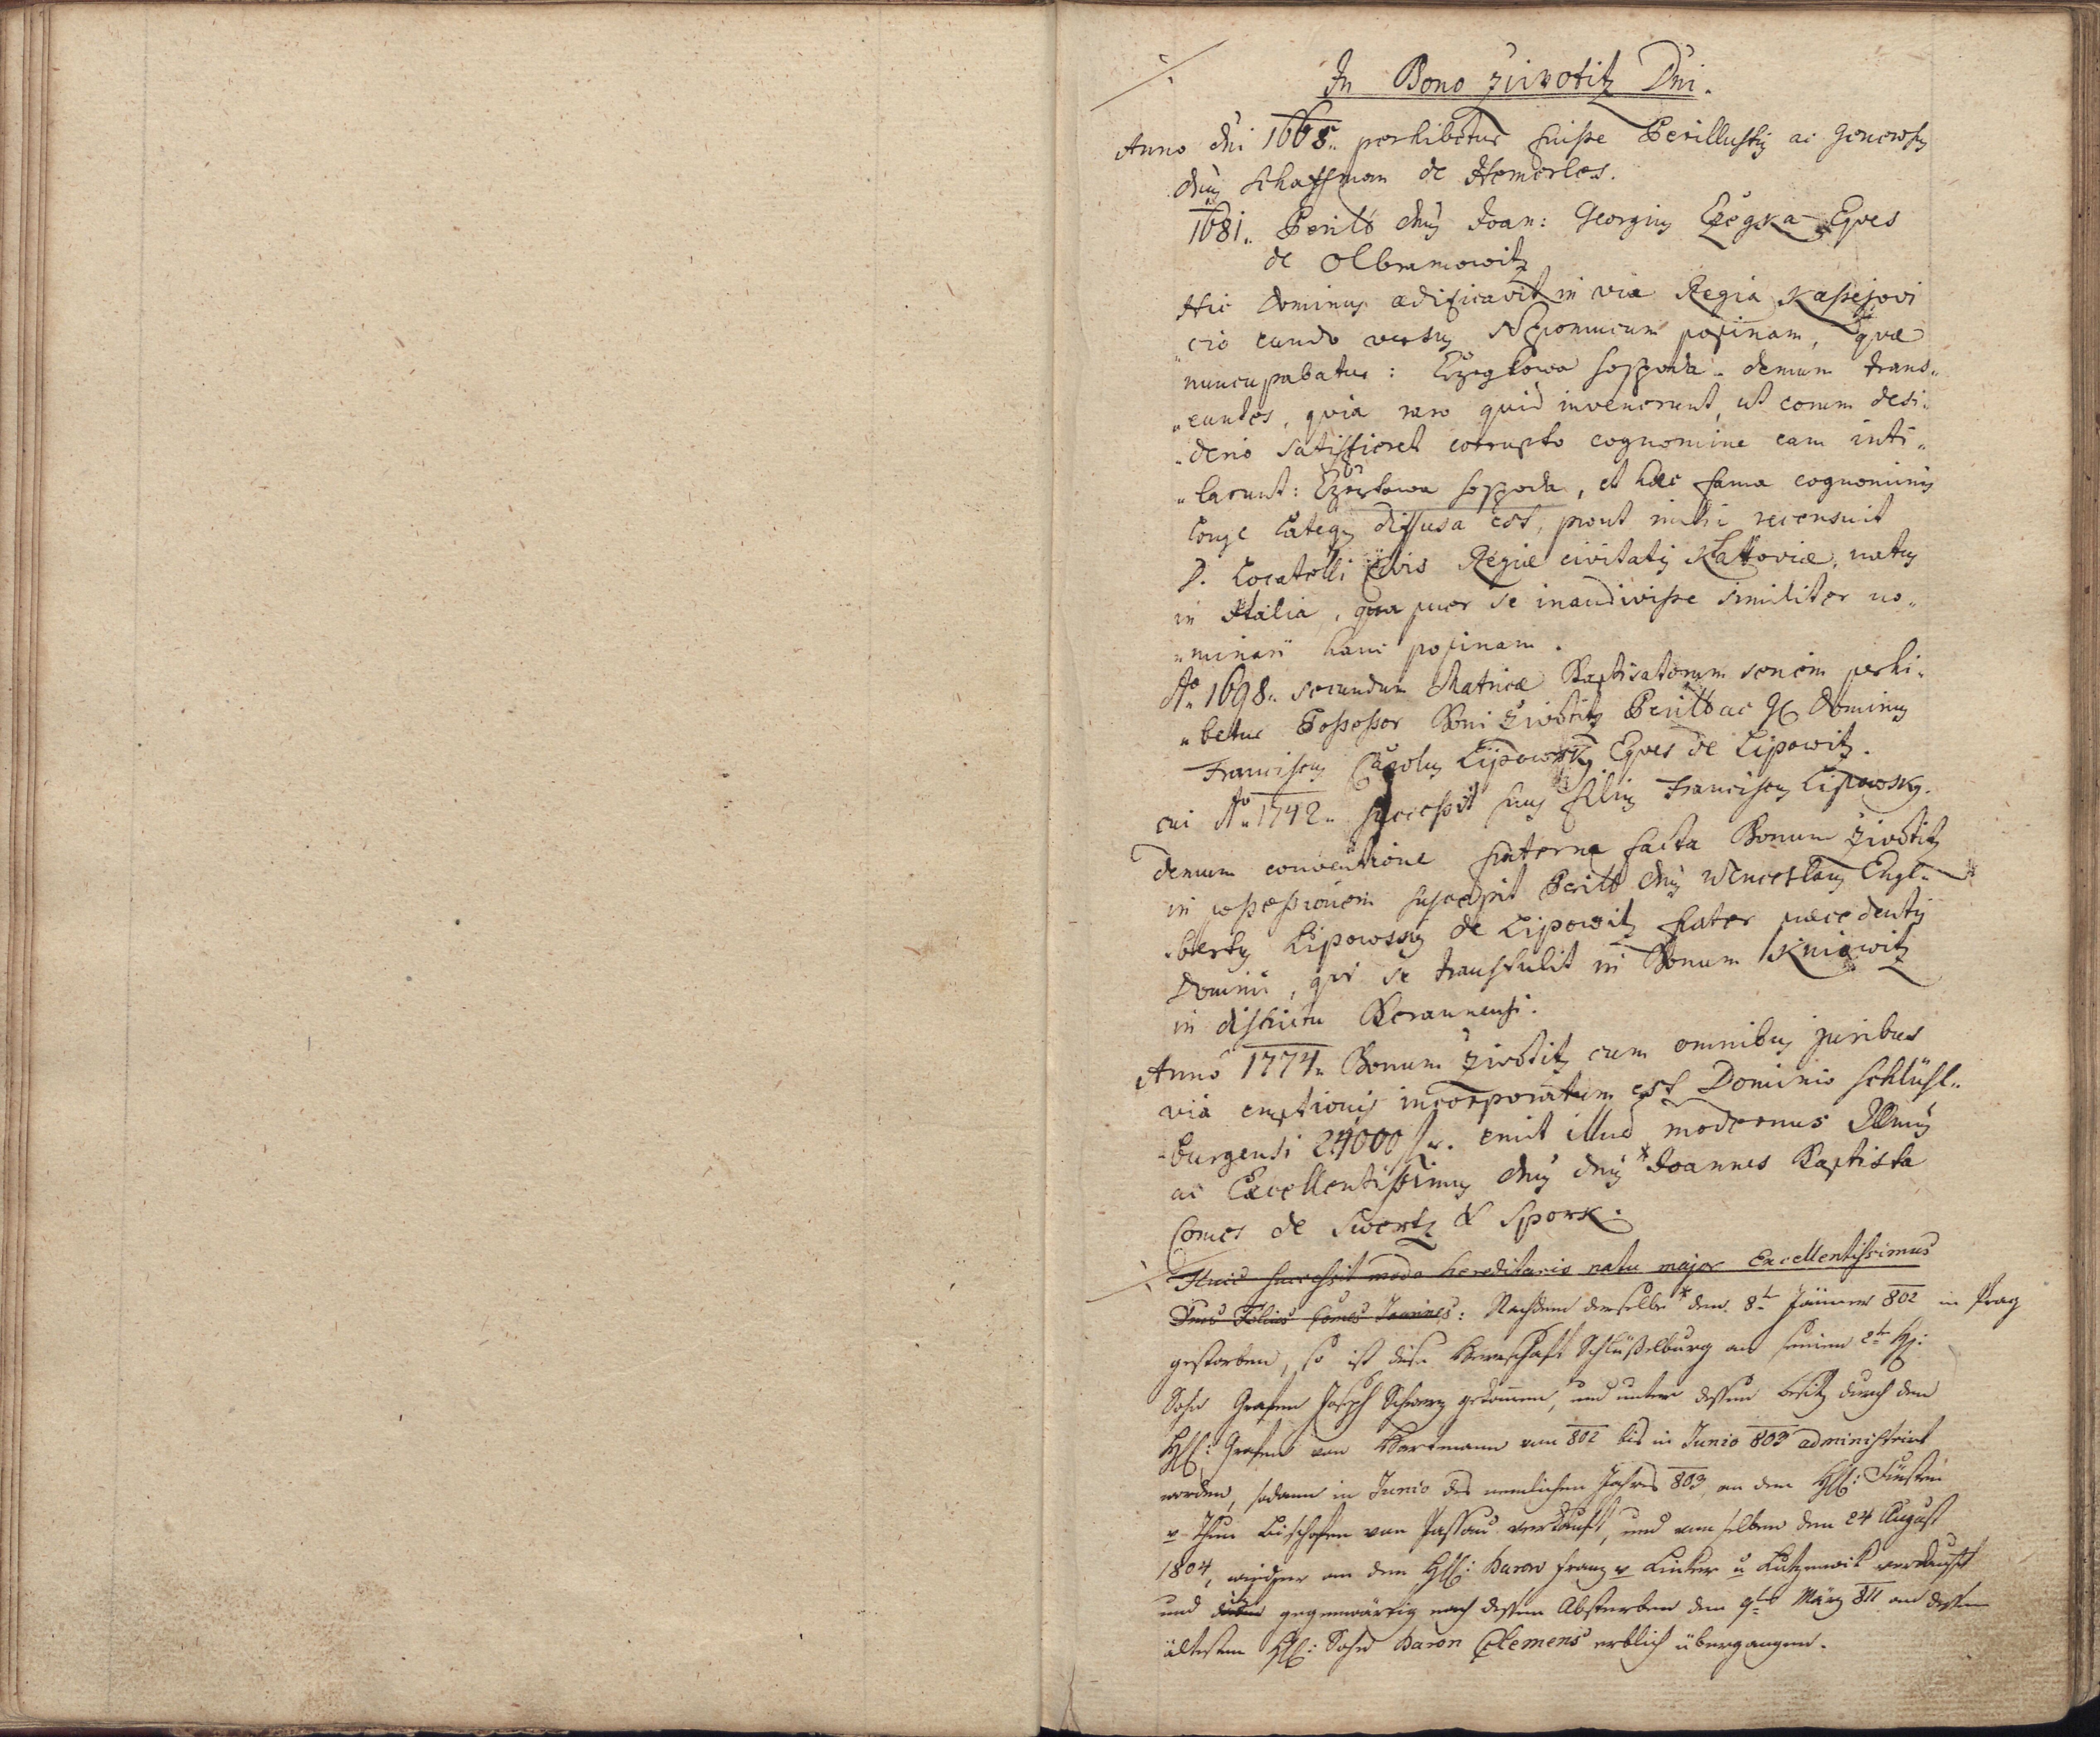 In Bono Ziwotitz Dni.
Anno dni 1668. perhibetur fuisse Perillustris ac Generosus
dnus Schaffman de Hemerles.
1681. Perills dnus Joan: Georgius Czegka Eques
de Olbramowitz
Hic Dominus ædificavit in via Regia Kassejovi
cio eundo versus Nepomucum popinam, quæ
nuncupabatur: Czegkowa hospoda. demum trans„
„euntes, quia raro quid invenerunt, ut eorum desi„
„derio satisfieret corrupto cognomine eam inti„
„larunt: Czertowa hospoda, et hæc fama cognominis
longe lateq diffusa est, prout mihi recensuit
D. Locatelli Civis Regiæ civitatis Kattoviæ, natus
in Italia, qua puer se inaudivisse similiter no„
„minari hanc popinam.
Ao 1698. secundum Matricæ Baptisatorum seriem perhi„
„betur Possessor Boni Ziwotitz Perills ac G Dominus
Franciscus Carolus Lipowsky Eques de Lipowitz.
cui Ao 1742. successit suus filius Franciscus Lipowsky.
Demum conventione fraterna facta Bonum Ziwotitz
in possessionem suscepit Perills dnus Wenceslaus Engl„
„bertus Lipowsky de Lipowitz frater præcedentis
Domini, qui se transtulit in Bonum Kniowitz
in districtu Beraunensi.
Anno 1774. Bonum Ziwotitz cum omnibus juribus
via emptionis incorporatum est Dominio Schlüsl„
„burgensi 24000 fr. emit illud modernus Illmus
ac Excellentissimus dnus dnus * Joannes Baptista
Comes de Swertz & Spork.
Huic successit modo hereditario natu major Excellentissimus
Dnus Filius Comes Joannes: Nachdem derselbe * den 8ten Jänner 802 in Prag
gestorben, so ist diese Herrschaft Schlüßelburg an seinen 2ten H:
Sohn Grafen Joseph Schwerz gekommen, und unter dessen Besitz durch den
H: Grafen von Hartmann von 802 bis in Junio 803 administrirt
worden, sodann in Junio des nemlichen Jahres 803 an den H: Fürsten
v Thun Bischofen von Passau verkauft, und von selben den 24 August
1804, wieder an den H: Baron Franz v Linker u Lutzenwik verkauft
und gegenwärtig nach dessen Absterben den 9ten März 811 an dessen
ältesten H: Sohn Baron Clemens erblich übergangen.